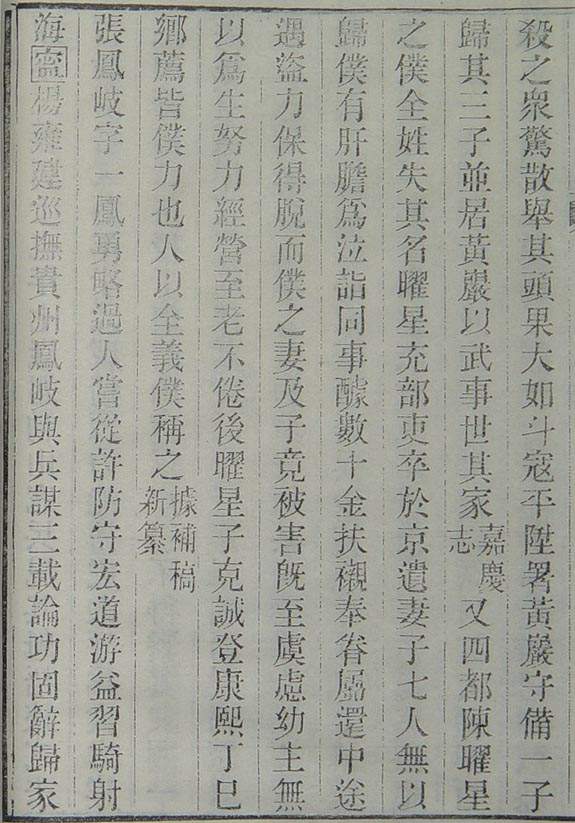 殺之衆驚散舉其頭果大如斗寇平陞署黃巖守備一子
歸其三子並居黃巖以武事世其家嘉慶志又四都陳曜星
之僕全姓失其名曜星充部吏卒於京遺妻子七人無以
歸僕有肝膽爲泣詣同事醵數十金扶櫬奉眷屬還中途
遇盜力保得脫而僕之妻及子竟被害旣至虞慮幼主無
以爲生努力經營至老不倦後曜星子克誠登康熙丁巳
鄉薦皆僕力也人以全義僕稱之據補稿新纂
張鳳岐字一鳳勇略過人嘗從許防守宏道游益習騎射
海寧楊雍建巡撫貴州鳳岐與兵謀三載論功固辭歸家